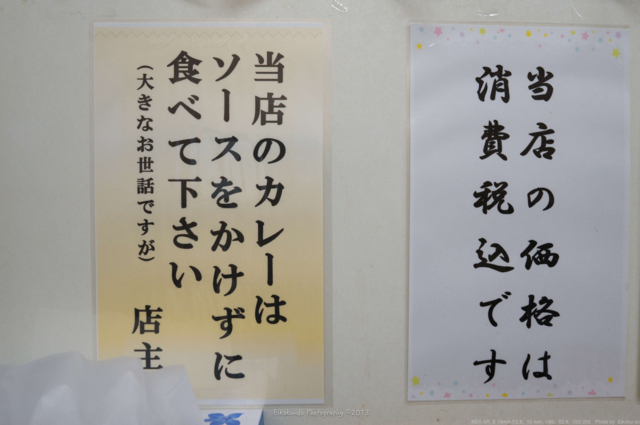 当店のカレーは
ソースをかけずに
食べて下さい
(大きなお世話ですが)
店主
当店の価格は
消費税込です